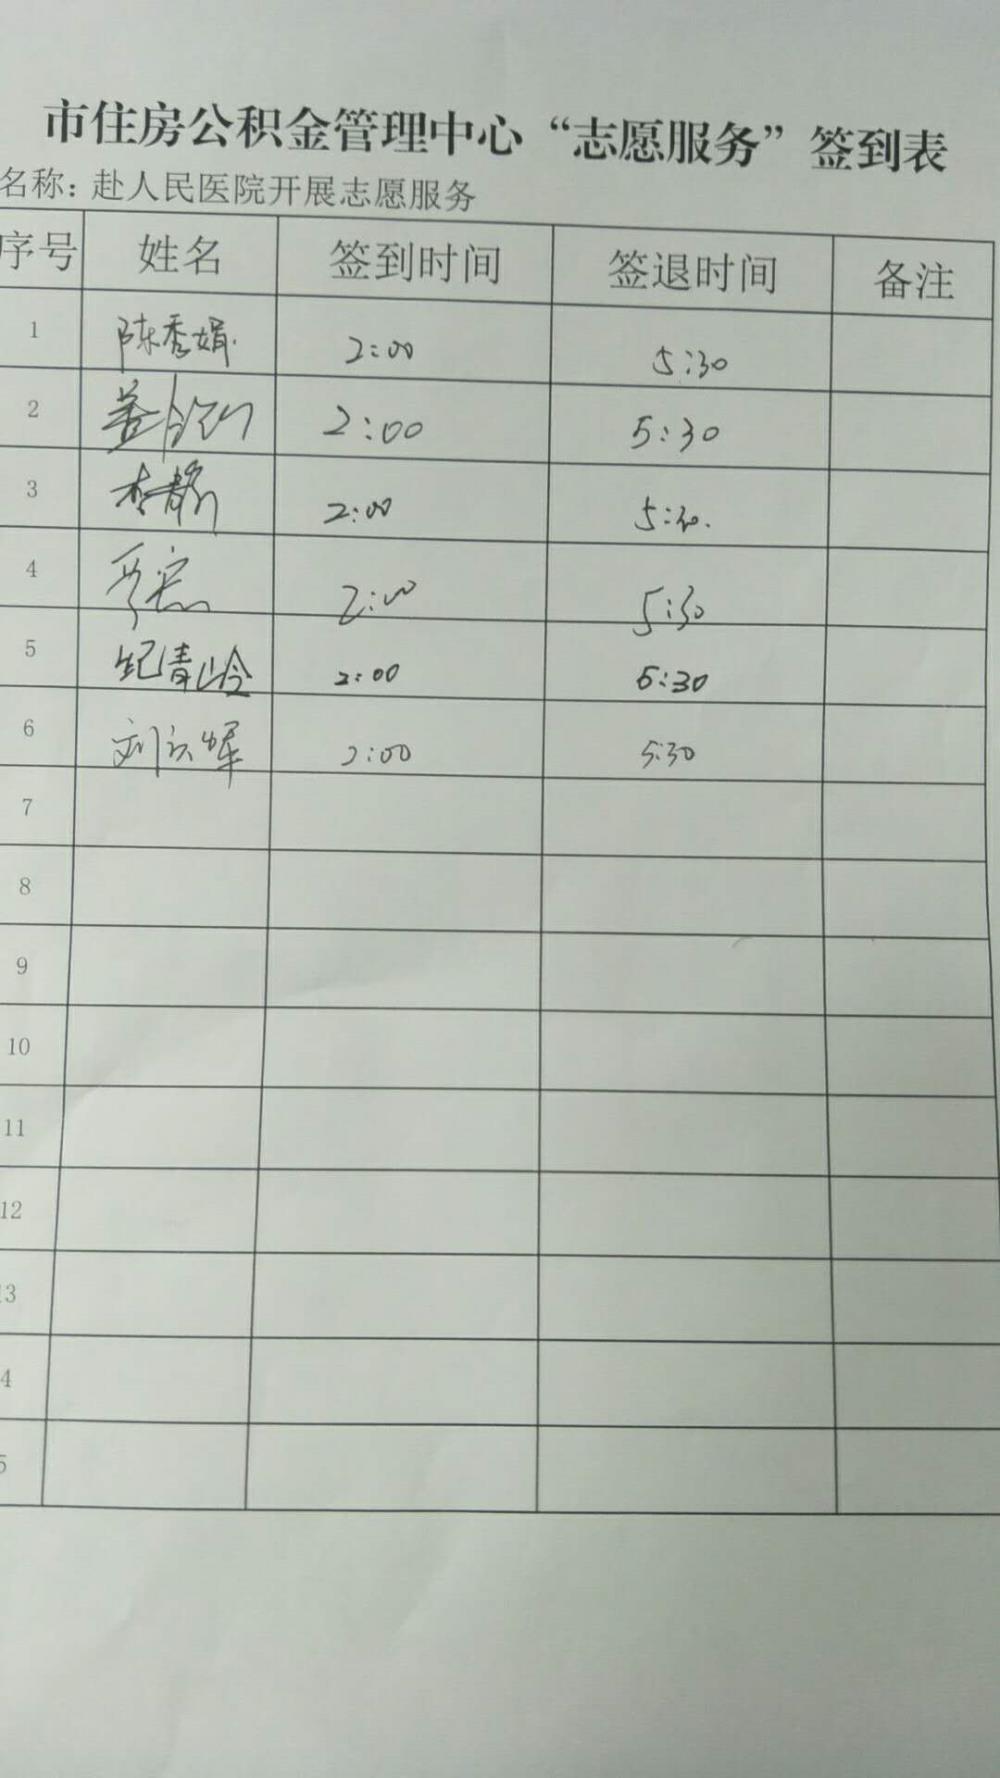 市住房公积金管理中心“志愿服务”签到表
名称：赴人民医院开展志愿服务
序号 姓名 签到时间 签退时间 备注
1 陈秀娟 2:00 5:30
2 2:00 5:30
3 李静 2:00 5:30.
4 2:00 5:30
5 纪青山令 2:00 5:30
6 刘 2:00 5:30
7
8
9
10
11
12
13
4
5